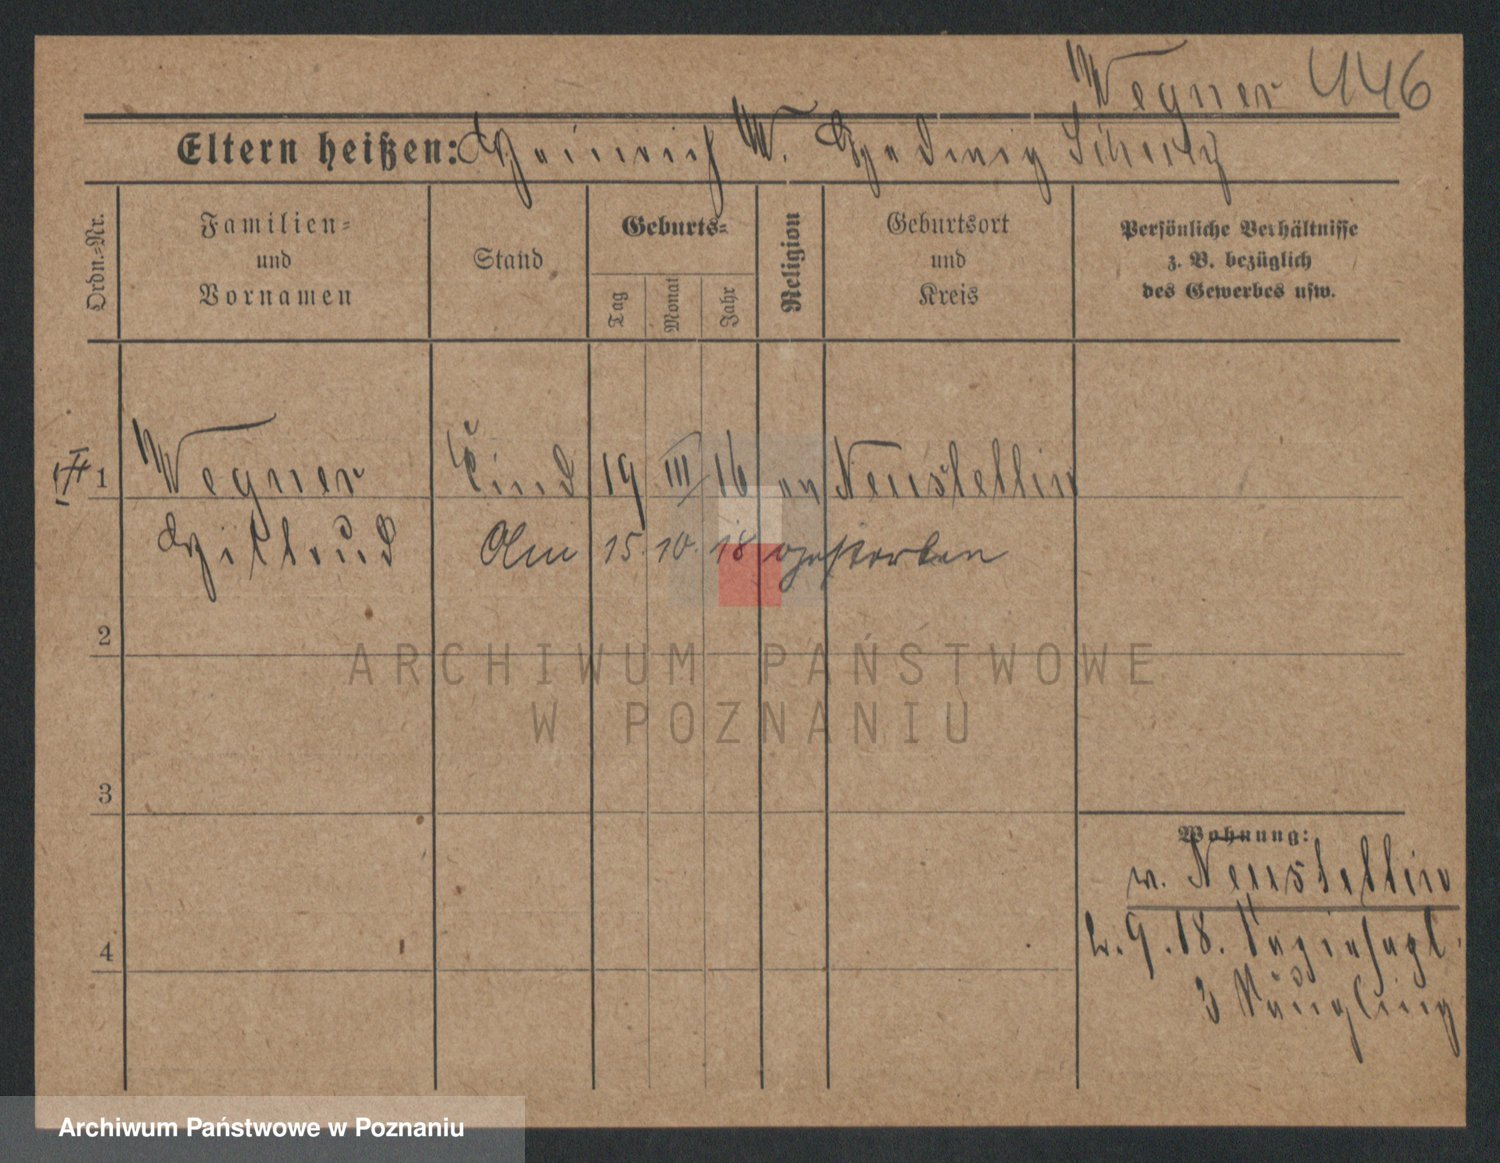 Wegner 446
Eltern heißen: Heinrich W. Hedwig Schulz
Ordn.-Nr.
Familien-
und
Vornamen
Stand
Geburts-
Tag
Monat
Jahr
Religion
Geburtsort
und
Kreis
Persönliche Verhältnisse
z. B. bezüglich
des Gewerbes usw.
1 Wegner Kind 19 III 16 ev Neustettin
Hiltrud Am 15. 10. 18 gestorben
2
3
4
Wohnung:
w. Neustettin
9.18.
3 Säugling
ARCHIWUM PAŃSTWOWE
W POZNANIU
Archiwum Państwowe w Poznaniu